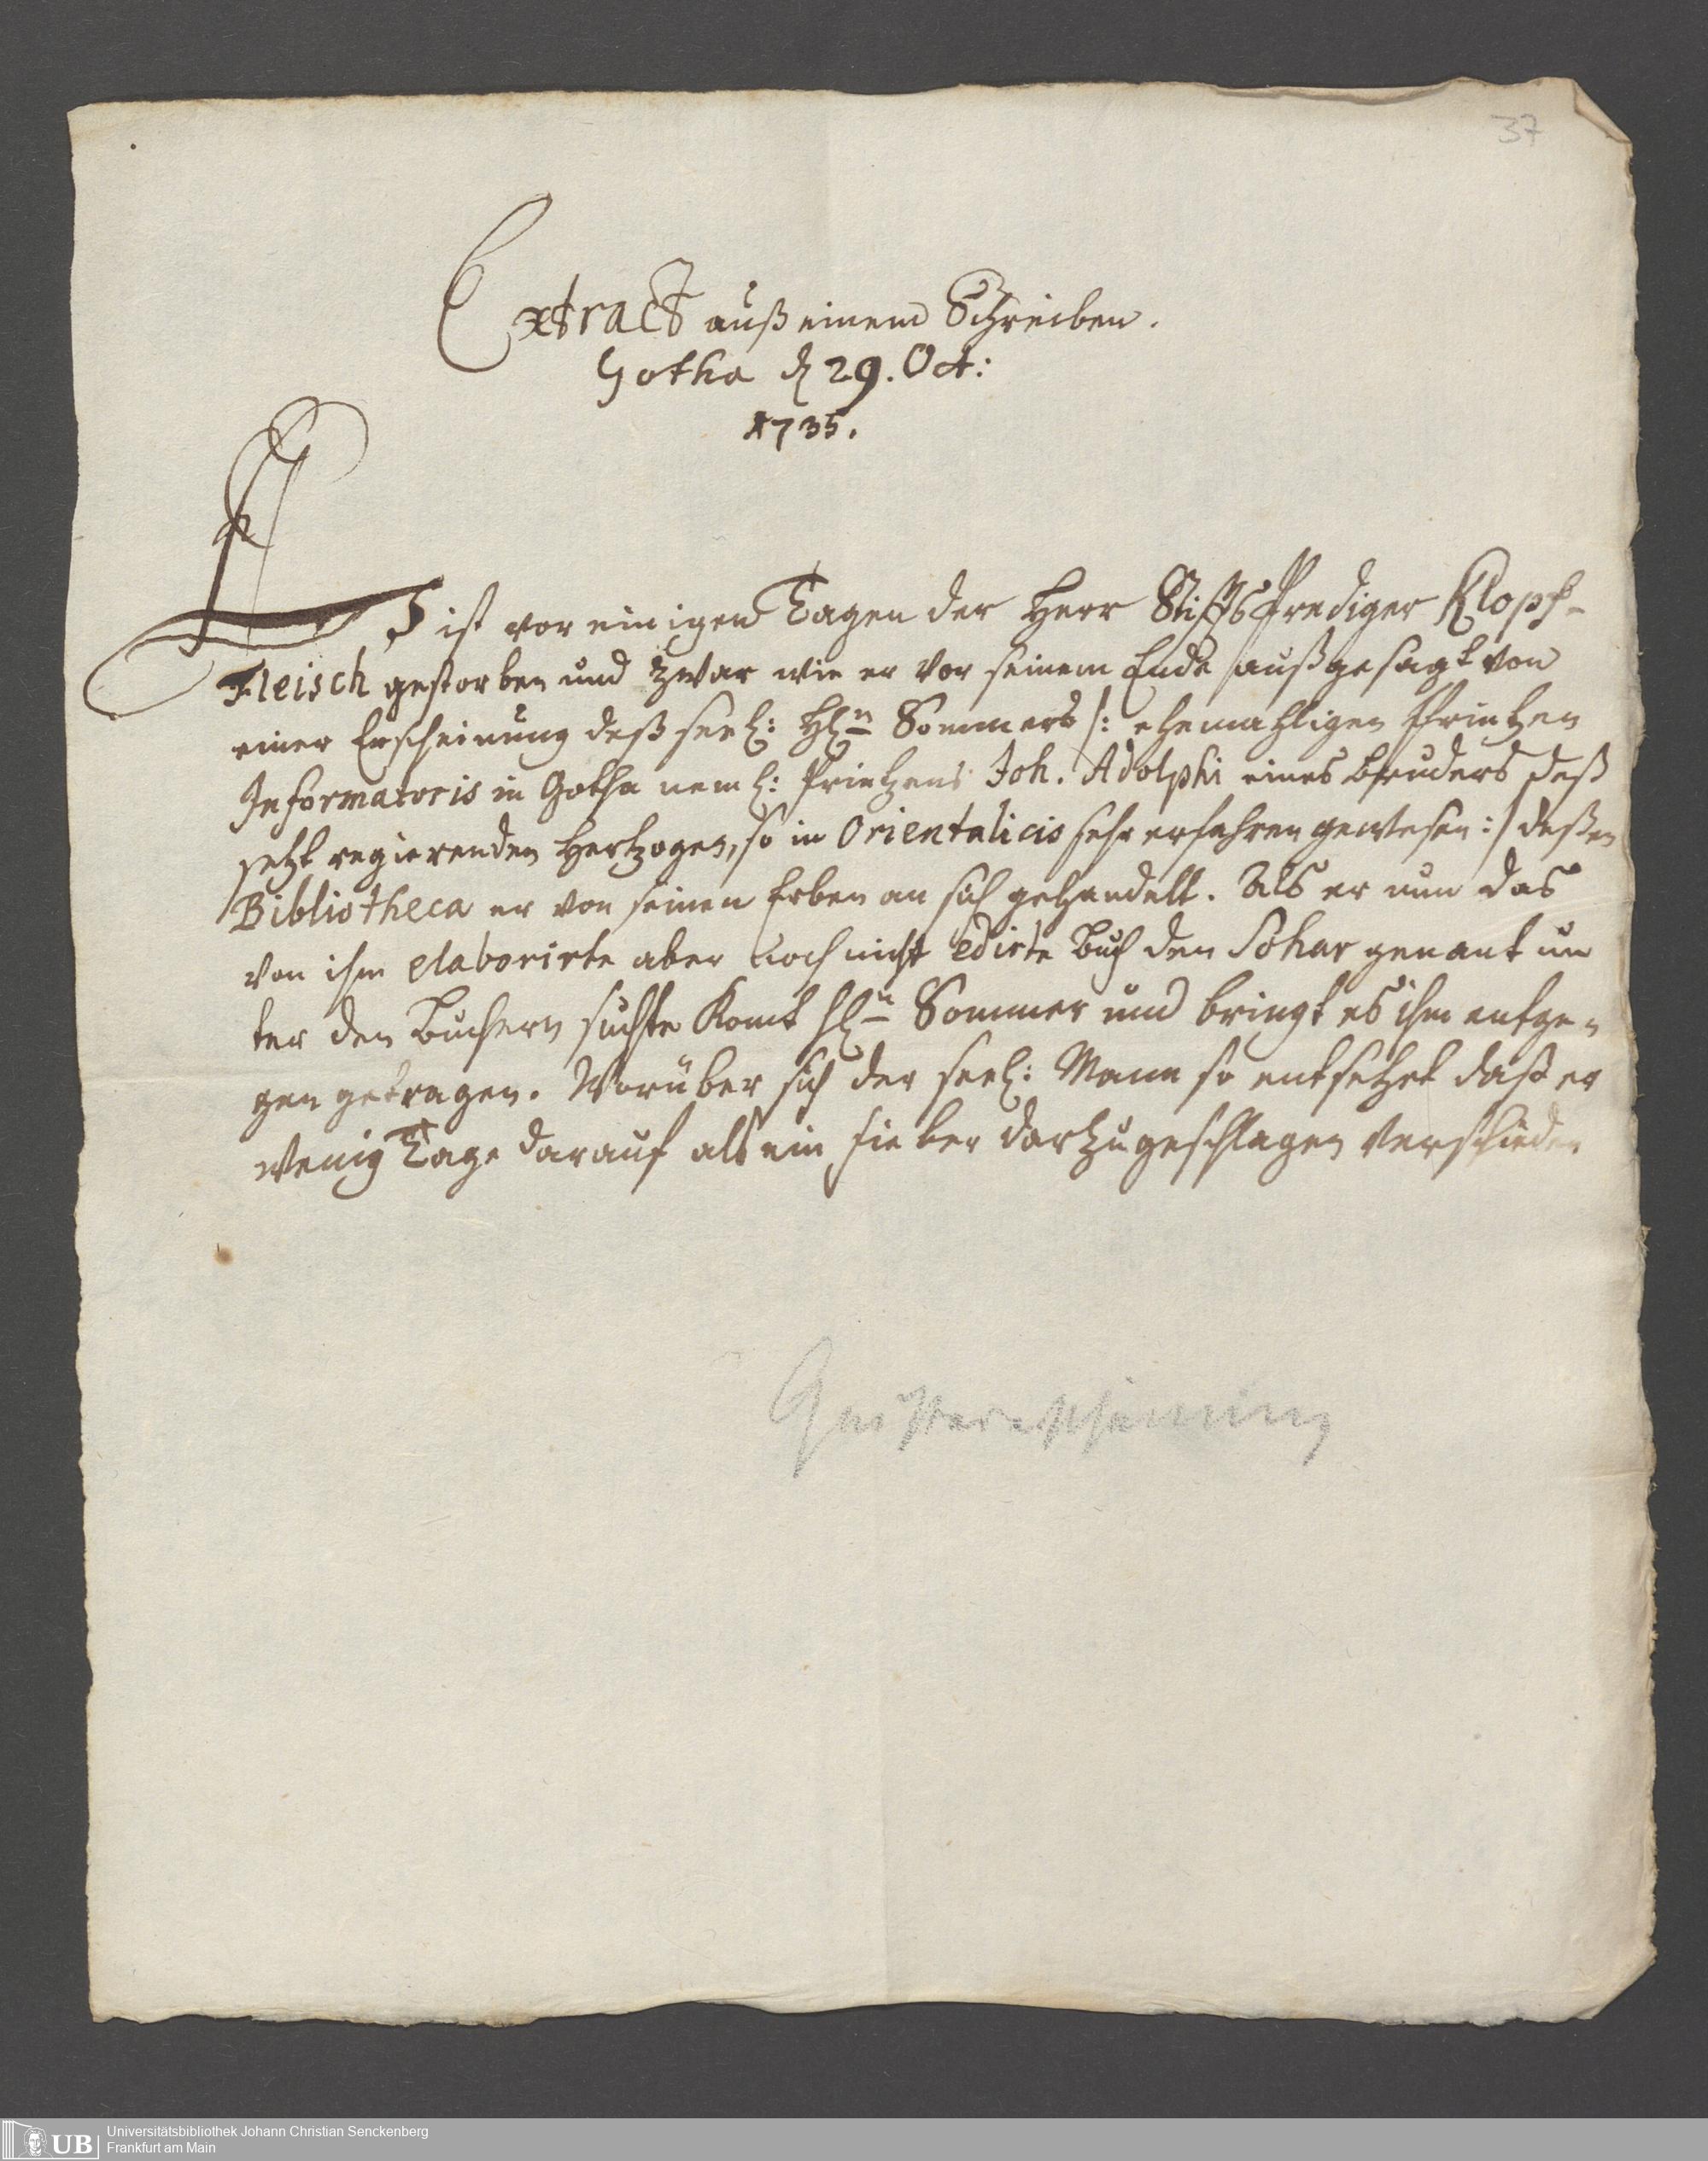 37
Extract auß einem Schreiben.
Gotha d 29. Oct:
1735.
Es ist vor einigen Tagen der Herr StifftsPrediger Klopf-
Fleisch gestorben und zwar wie er vor seinem Ende außgesagt von
einer Erscheinung deß seel: Hl̃n Sommers /: ehemahligen Printzen
Informatoris in Gotha neml: Printzens Joh. Adolphi eines bruders deß
jetzt regierenden Hertzogen, so in Orientalicis sehr erfahren gewesen :/ deßen
Bibliotheca er von seinen Erben an sich gehandelt. Als er nun das
von ihm elaborirte aber noch nicht edirte Buch den Sohar genant un
ter den Buchern suchte Komt Hl̃n Sommer und bringt es ihm entge-
gen getragen. Worüber sich der seel: Mann so entsetzet daß er
wenig Tage darauf als ein fieber dartzu geschlagen verschieden
Geistererscheinung
UB
Universitätsbibliothek Johann Christian Senckenberg
Frankfurt am Main